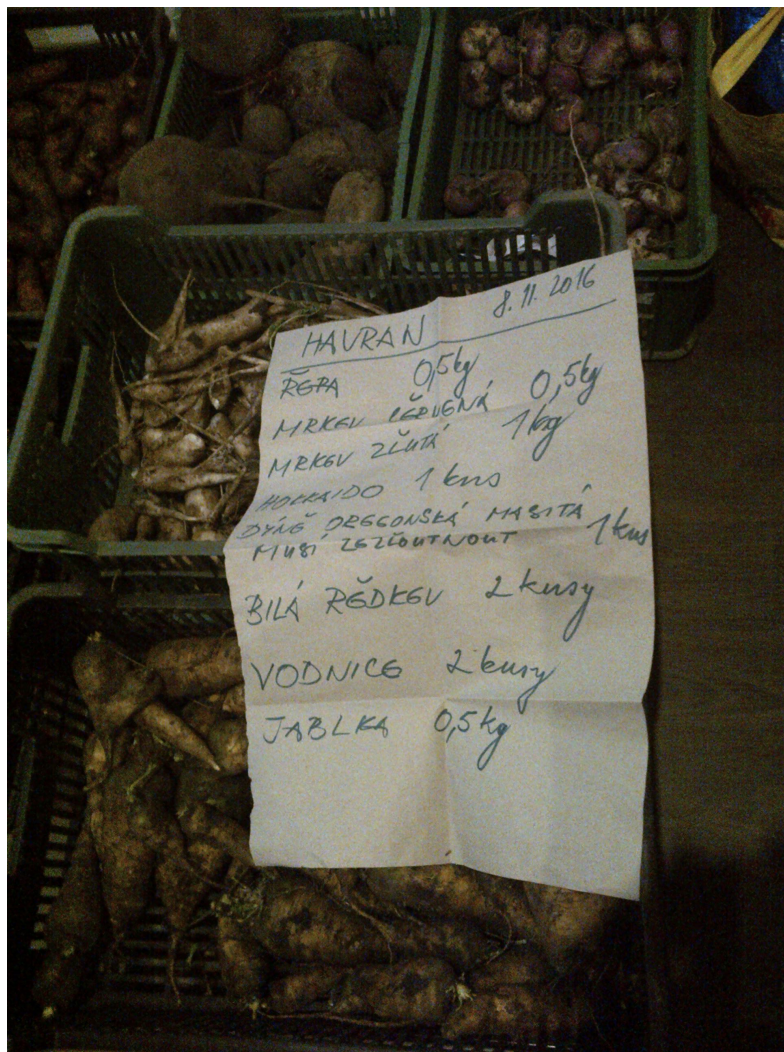 HAVRAN 8.11.2016
ŘEPA 0,5kg
MRKEV ČERVENÁ 0,5kg
MRKEV ŽLUTÁ 1kg
HOKKAIDO 1 kus
DÝNĚ OREGONSKÁ MASITÁ
MUSÍ ZEŽLOUTNOUT 1 kus
BILÁ ŘEDKEV 2 kusy
VODNICE 2 kusy
JABLKA 0,5 kg